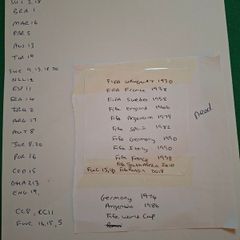 BRA 1
MAR 16
POR 5
AUS 13
TUR 10
FWC 9, 13, 18, 20
ECU 11
IRA 14
ARG 17
AUT 8
JOR 8, 20
POR 16
COD 15
GHA 2, 13
ENG 19,
CC8, CC11
FWC 14, 15, 5
Fifa Uruguay 1930
Fifa France 1938
Fifa Sweden 1958
Fifa England 1966
Fifa Argentina 1978
Fifa Spain 1982
Fifa Germany
Fifa Italy 1990
Fifa France 1998
Fifa South Africa 2010
2018
Germany 1974
Argentina 1986
Fifa World Cup
need